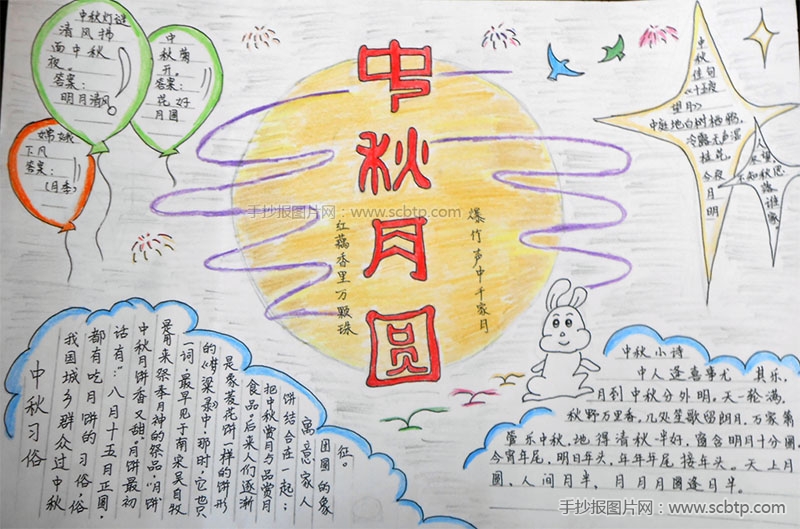 中秋灯谜
清风拂
面中秋
夜。
答案：
明月清风
中
秋菊
开。
答案：
花好
月圆
嫦娥
下凡
答案：
(月季)
中秋月圆
红藕香里万颗珠
爆竹声中千家月
中秋
佳句
《十五夜
望月》
中庭地白树栖鸦，
冷露无声湿
桂花。
今夜
月
明
人
尽望，
不知秋思
落谁
家
手抄报图片网：www.scbtp.com
中秋习俗
我国城乡群众过中秋
都有吃月饼的习俗，俗
话有："八月十五月正圆，
中秋月饼香又甜"。月饼最初
是用来祭奉月神的祭品，"月饼"
一词，最早见于南宋吴自牧
的《梦粱录》中，那时，它也只
是象菱花饼一样的饼形
食品，后来人们逐渐
把中秋赏月与品赏月
饼结合在一起，
寓意家人
团圆的象
征。
中秋小诗
中人逢喜事尤其乐，
月到中秋分外明，天一轮满，
秋野万里香，几处笙歌留朗月，万家箫
管乐中秋，地得清秋一半好，窗含明月十分圆，
今宵年尾，明日年头，年年年尾接年头。天上月
圆，人间月半，月月月圆逢月半。
手抄报图片网：www.scbtp.com